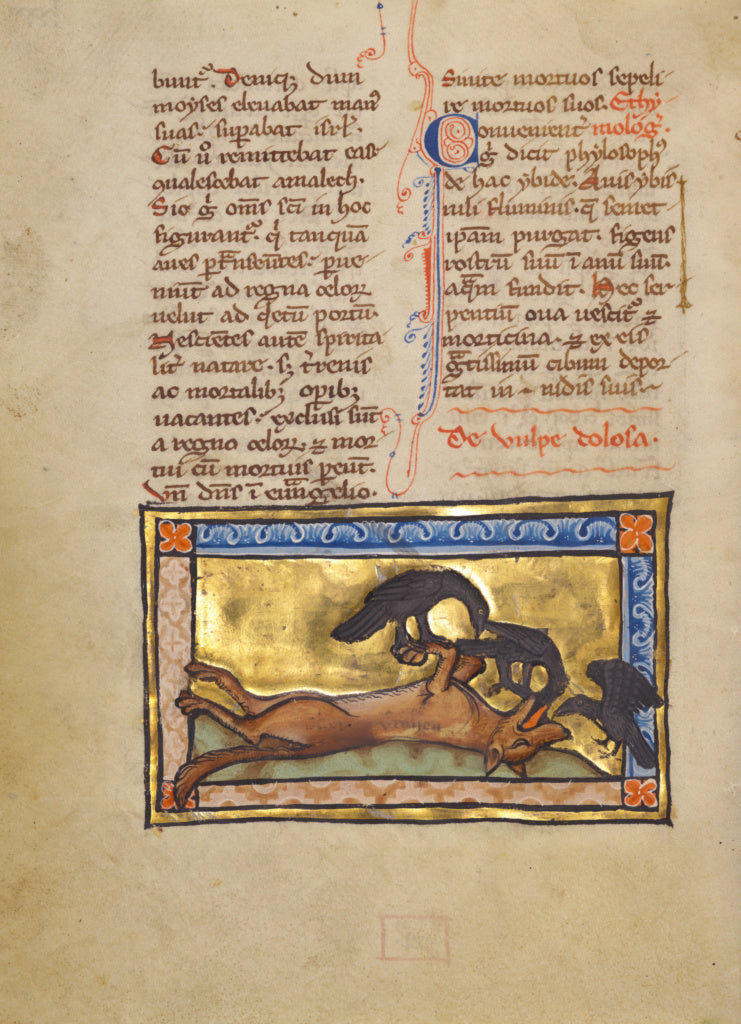 bunt᷑. Deniq; dum
moyses eleuabat man᷒
suas. supabat isrl̓.
Cū u̓ remittebat eas
qualescebat amalech.
Sic g̓ om̅s sc̅i in hoc
figurant᷑. q̓ tanquā
aues
niunt ad regna celoꝝ
uelut ad portum.
Nescientes autē spirita
lit̓ natare. s; t̓renis
ac mortalib; opib;
uacantes. exclusi sunt
a regno celoꝝ. ⁊ mor
tui cū mortuis peunt.
Vn̅ dn̅s ī euangelio.
Sinite mortuos sepeli-
re mortuos suos. Ethy-
Conuenient᷑ molog̓.
g̓ dicit phylosoph᷒
de hac ybide. Auis ybis
nili fluminis. q̅ semet
ipam purgat. figens
rostrū suū ī anū suū.
aquam fundit. Hec ser-
pentiū oua uescit᷑ ⁊
morticina. ⁊ ex eis
gͣtissimū cibum depor-
tat in nidis suis
De vulpe dolosa.